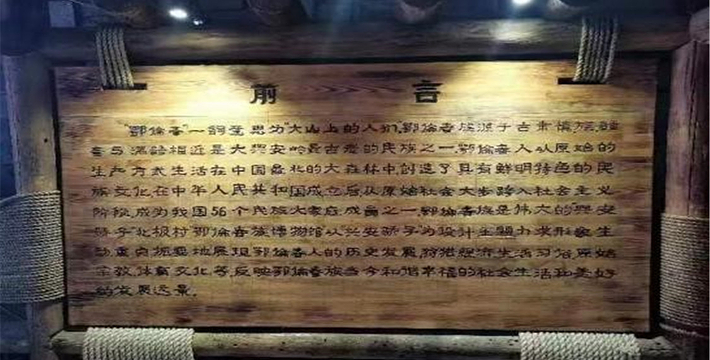 前 言
“鄂伦春”一词意思为“大山上的人们”,鄂伦春族源于古肃慎族,语
言与满语相近是大兴安岭最古老的民族之一.鄂伦春人从原始的
生产方式生活在中国最北的大森林中,创造了具有鲜明特色的民
族文化.在中华人民共和国成立后,从原始社会大步踏入社会主义
阶段,成为我国56个民族大家庭成员之一.鄂伦春族是伟大的兴安
骄子“北极村”鄂伦春族博物馆以兴安骄子”为设计主题力求形象生
动重点 地展现鄂伦春人的历史发展,狩猎经济生活习俗原始
宗教体育文化等,反映鄂伦春族当今和谐幸福的社会生活和美好
的发展远景.